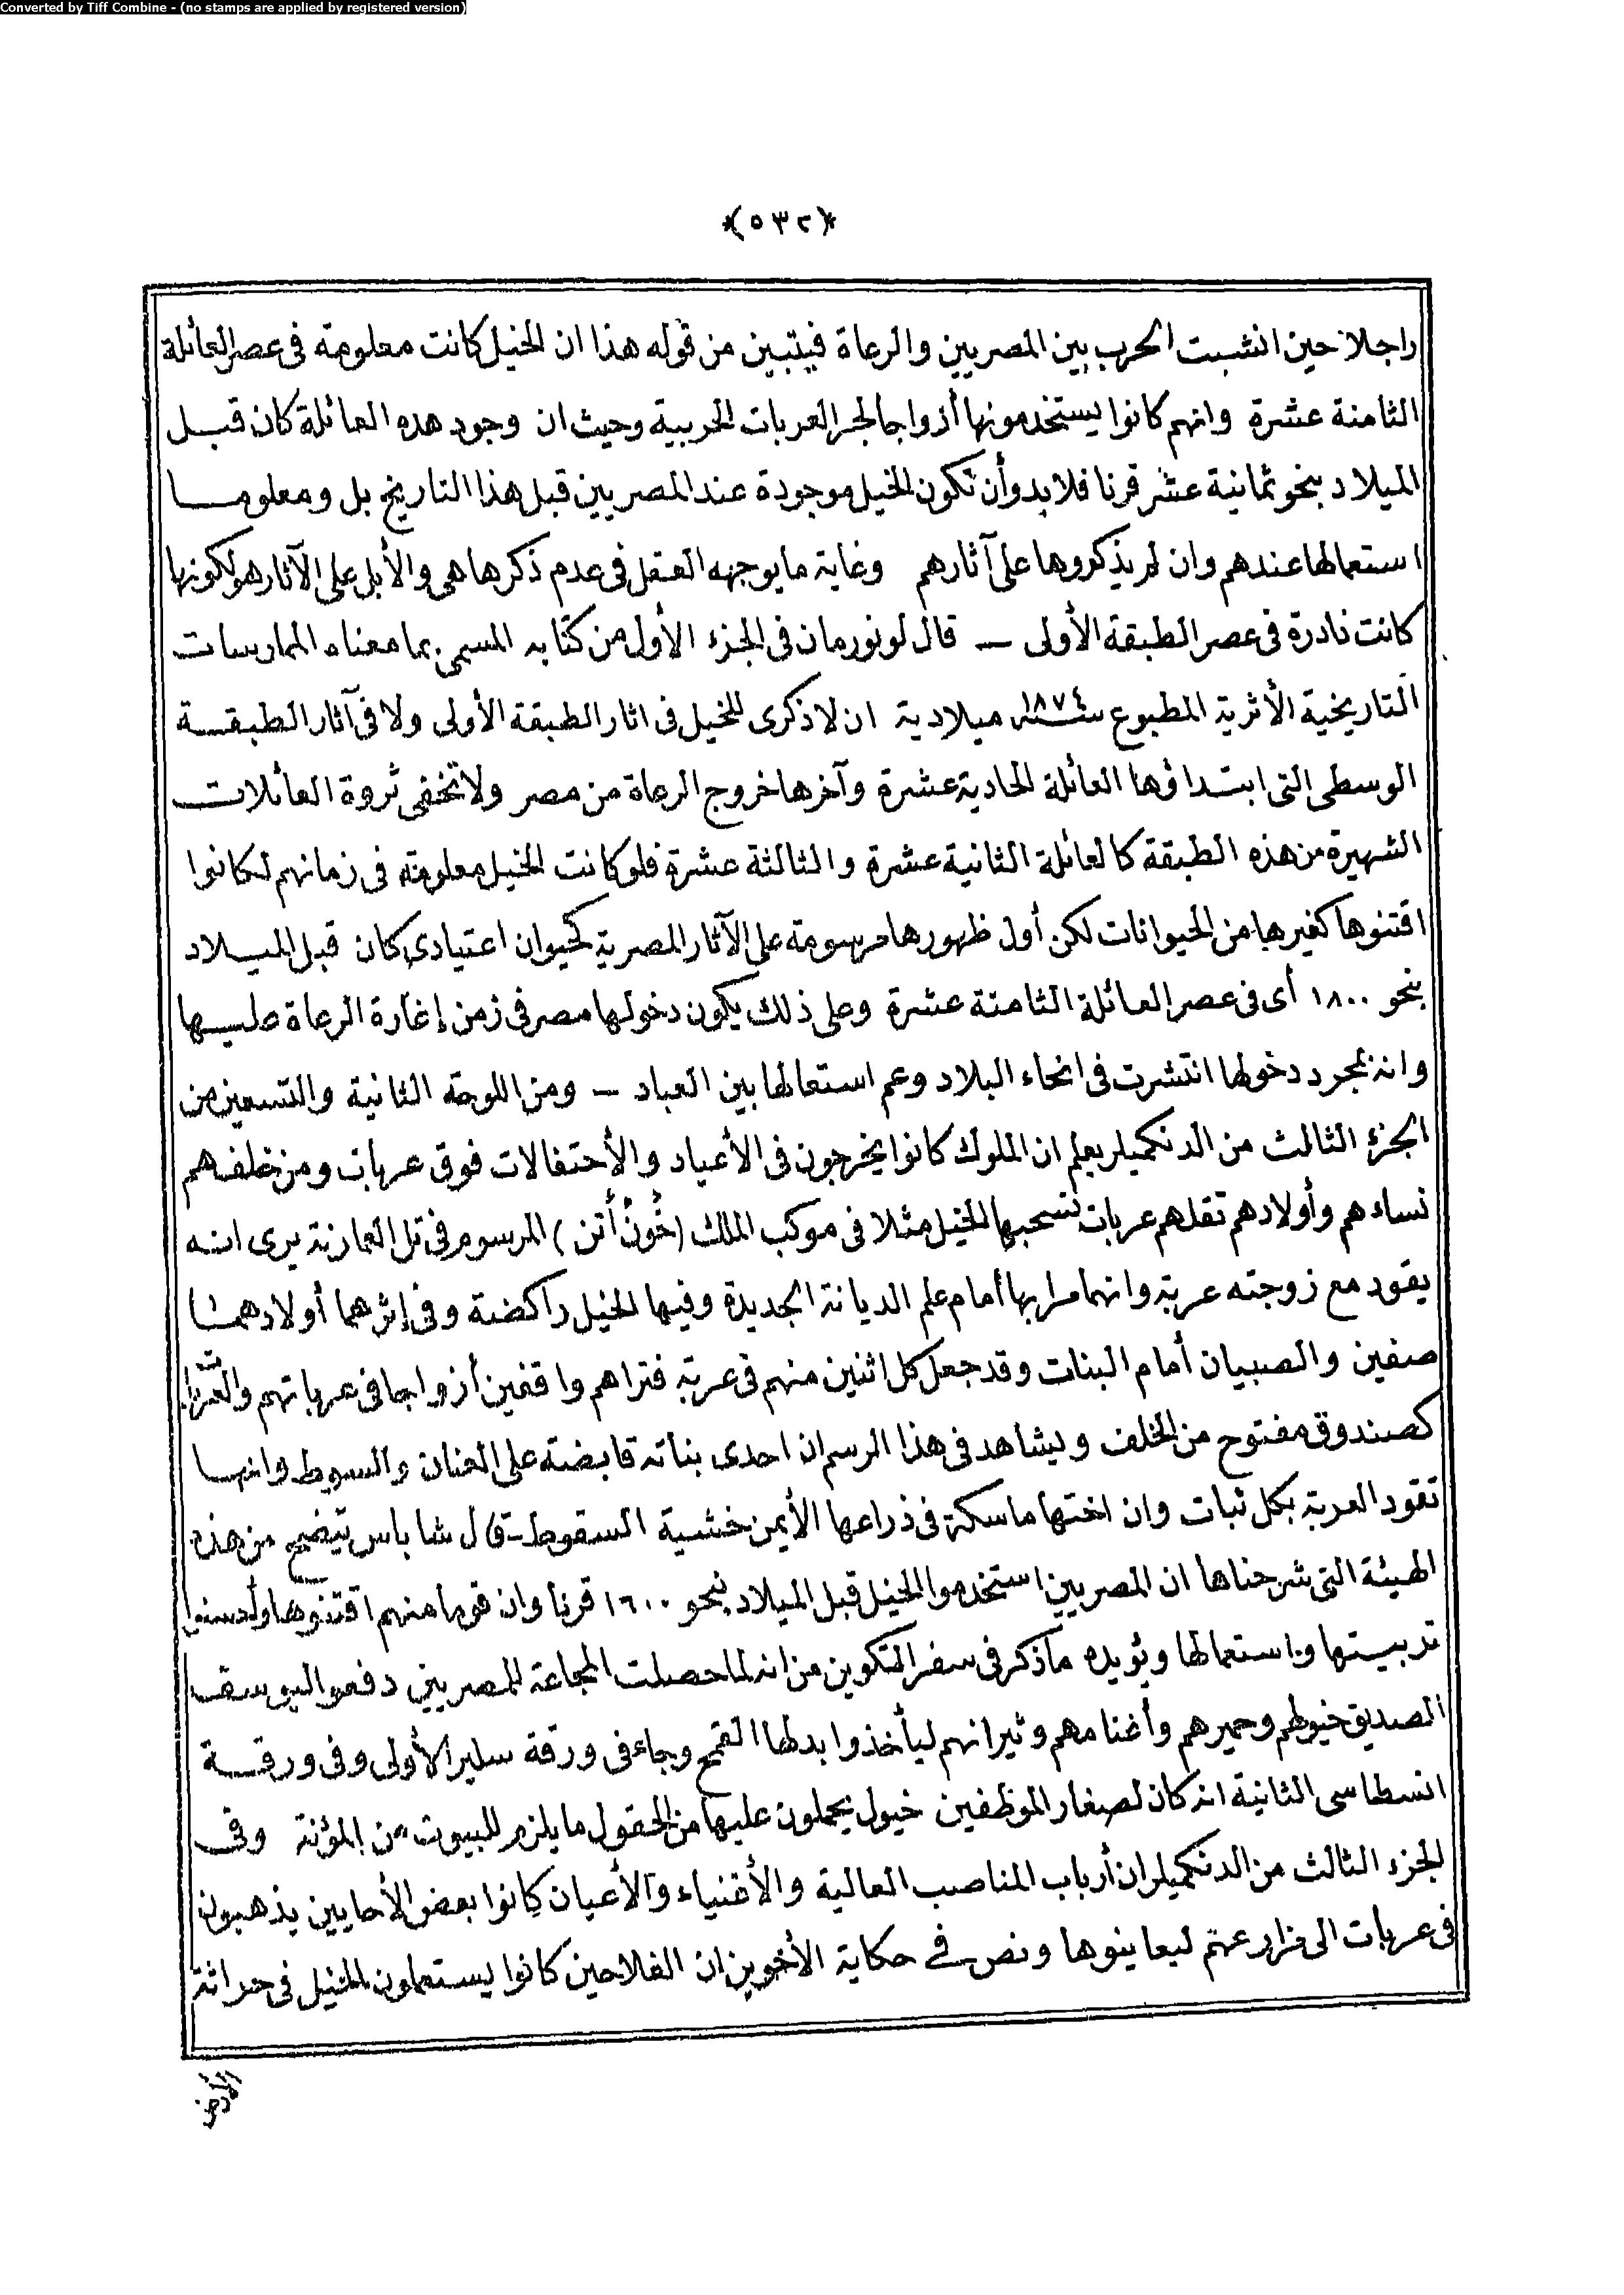 Converted by Tiff Combine - (no stamps are applied by registered version)
﴿٥٣٢﴾
راجلا حين انشبت الحرب بين المصريين والرعاة فيتبين من قوله هذا ان الخيل كانت معلومة فى عصر العائلة
الثامنة عشرة وانهم كانوا يستخدمونها أزواجا لجر العربات الحربية وحيث ان وجود هذه العائلة كان قبل
الميلاد بنحو ثمانية عشر قرنا فلا بد وأن تكون الخيل موجودة عند المصريين قبل هذا التاريخ بل ومعلوما
استعمالها عندهم وان لم يذكروها على آثارهم وغاية ما يوجهه العقل فى عدم ذكرها هى والأبل على الآثار هو لكونها
كانت نادرة فى عصر الطبقة الأولى – قال لونورمان فى الجزء الأول من كتابه المسمى بما معناه الممارسات
التاريخية الأثرية المطبوع سنة ١٨٧٤ ميلادية ان لا ذكرى للخيل فى اثار الطبقة الأولى ولا فى آثار الطبقة
الوسطى التى ابتداؤها العائلة الحادية عشرة وآخرها خروج الرعاة من مصر ولا تخفى ثروة العائلات
الشهيرة من هذه الطبقة كالعائلة الثانية عشرة والثالثة عشرة فلو كانت الخيل معلومة فى زمانهم لكانوا
اقتنوها كغيرها من الحيوانات لكن أول ظهورها مرسومة على الآثار المصرية كحيوان اعتيادى كان قبل الميلاد
بنحو ١٨٠٠ أى فى عصر العائلة الثامنة عشرة وعلى ذلك يكون دخولها مصر فى زمن إغارة الرعاة عليها
وانه بمجرد دخولها انتشرت فى انحاء البلاد وعم استعمالها بين العباد – ومن اللوحة الثانية والتسعين من
الجزء الثالث من الدنكميلر يعلم ان الملوك كانوا يخرجون فى الأعياد والأحتفالات فوق عربات ومن خلفهم
نساءهم وأولادهم تقلهم عربات تسحبها الخيل مثلا فى موكب الملك (خُونْ أَتن) المرسوم فى تل العمارنة يرى انه
يقود مع زوجته عربة وانهما مرا بها أمام علم الديانة الجديدة وفيها الخيل راكضة وفى إثرهما أولادهما
صفين والصبيان أمام البنات وقد جعل كل اثنين منهم فى عربة فتراهم واقفين أزواجا فى عرباتهم والعربات
كصندوق مفتوح من الخلف ويشاهد فى هذا الرسم ان احدى بناته قابضة على العنان والسوط وانها
تقود العربة بكل ثبات وان اختها ماسكة فى ذراعها الأيمن خشية السقوط – قال شاباس يتضح من هذه
الهيئة التى شرحناها ان المصريين استخدموا الخيل قبل الميلاد بنحو ١٦٠٠ قرنا وان قوما منهم اقتنوها وأحسنوا
تربيتها واستعمالها ويؤيده ما ذكر فى سفر التكوين من انه لما حصلت المجاعة للمصريين دفعوا اليوسف
الصديق خيولهم وحميرهم وأغنامهم وثيرانهم ليأخذوا بدلها القمح وجاء فى ورقة سلير الأولى وفى ورقة
انسطاسى الثانية انه كان لصغار الموظفين خيول يحملون عليها من الحقول ما يلزم للبيوت من المؤنة وفى
الجزء الثالث من الدنكميلر ان أرباب المناصب العالية والأغنياء والأعيان كانوا بعض الأحايين يذهبون
فى عربات الى مزارعهم ليعاينوها ونص فى حكاية الأخوين ان الفلاحين كانوا يستعملون الخيل فى حراثة
الأرض